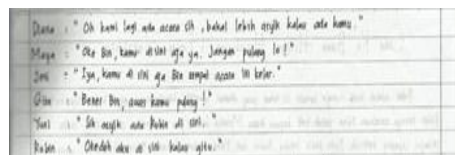 Diana : " Oh kami lagi ada acara sih, bakal lebih asyik kalau ada kamu."
Maya : " Oke Bin, kamu disini aja ya. Jangan pulang lo!"
Joni : " Iya, kamu di sini aja Bin sampai acara ini kelar."
: " Bener Bin, awas kamu pulang!"
Yuni : " Sih asyik ada Robin di sini."
Robin : " Okedeh aku di sini kalau gitu."